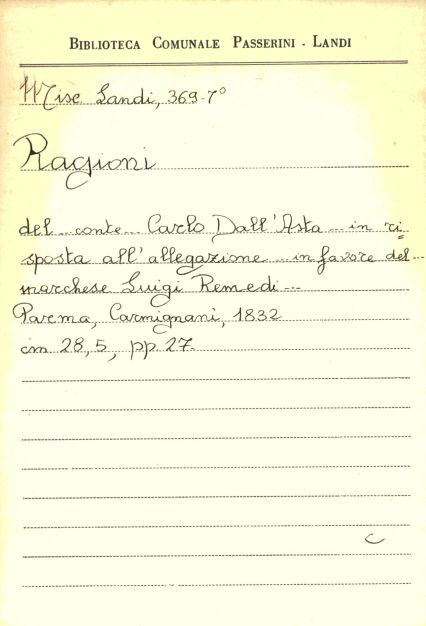 BIBLIOTECA COMUNALE PASSERINI - LANDI
Misc Landi, 369-7°
Ragioni
del ... conte ... Carlo Dall'Asta ... in ri=
sposta all'allegazione ... in favore del ...
marchese Luigi Remedi ...
Parma, Carmignani, 1832
cm 28,5, pp. 27.
C